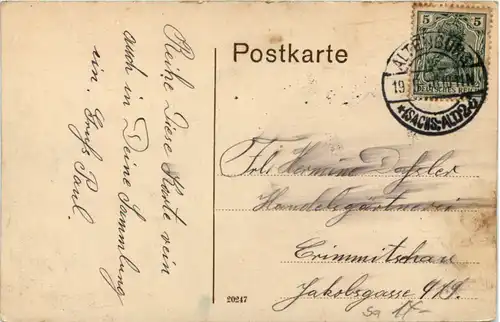 Postkarte
Reihe Diese Karte rein
auch in Deine Sammlung
ein. Gruß Paul.
5 5
DEUTSCHES REICH
ALTENBURG
19
*(SACHS.-ALT.)2
Frl. Hermine
Handelsgärtnerei
Crimmitschau
Jakobsgasse
20247